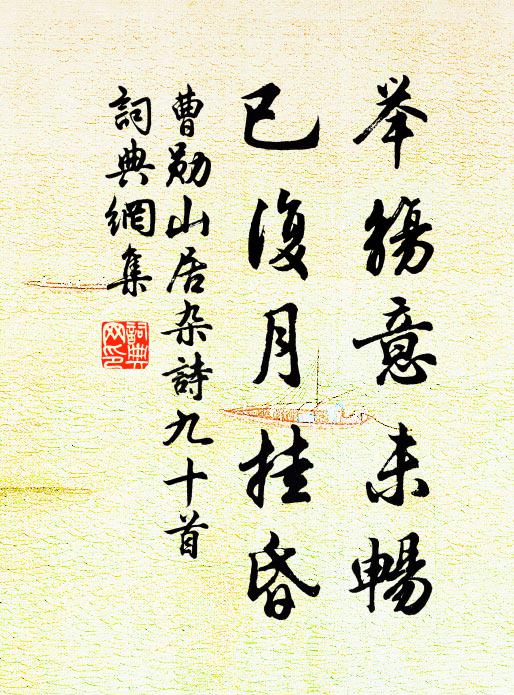 举觞意未畅
已復月挂昏
曹勋山居杂詩九十首
詞典網集
詞典網印